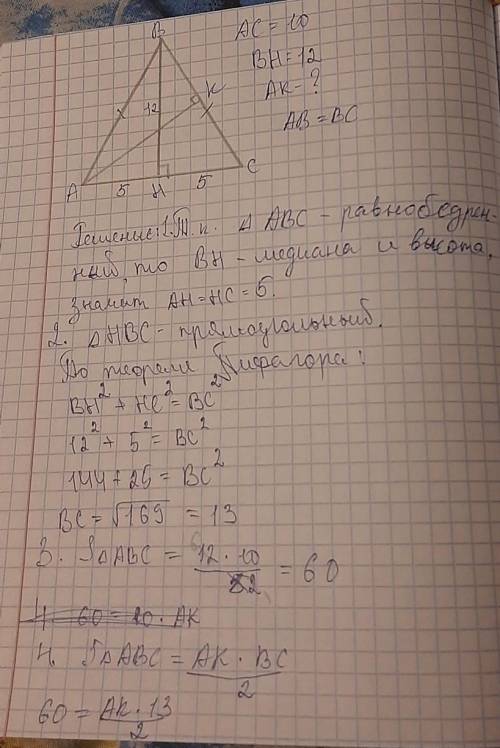 B
AC = 10
BH = 12
K
AK - ?
12
AB = BC
A
5
H
5
C
Решение: 1. Т. к. △ ABC - равнобедрен-
ный, то BH - медиана и высота,
значит AH = HC = 5.
2. △HBC - прямоугольный.
По теореме Пифагора:
BH² + HC² = BC²
12² + 5² = BC²
144 + 25 = BC²
BC = √169 = 13
3. S△ABC = 12 · 10 / 2 = 60
4. 60 = 10 · AK
4. S△ABC = AK · BC / 2
60 = AK · 13 / 2